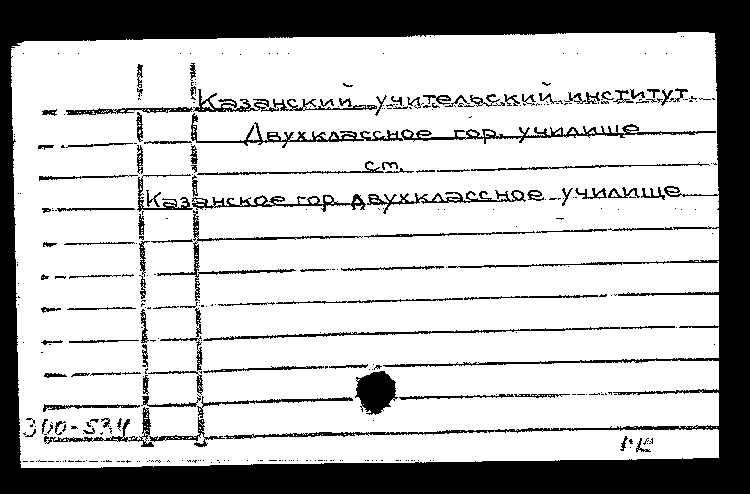 Казанский учительский институт.
Двухклассное гор. училище
см.
Казанское гор. двухклассное училище
300-534